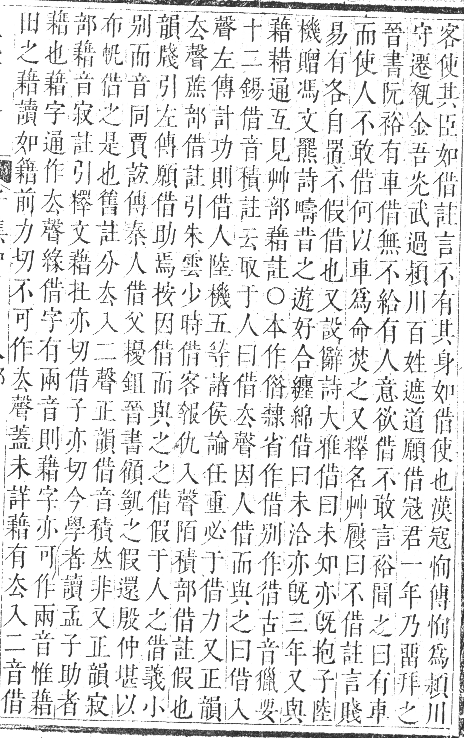 客使其臣如借註言不有其身如借使也漢寇恂傳恂爲潁川
守遷執金吾光武過潁川百姓遮道願借寇君一年乃畱拜之
晉書阮裕有車借無不給有人意欲借不敢言裕聞之曰有車
而使人不敢借何以車爲命焚之又釋名艸屨曰不借註言賤
易有各自置不假借也又設辭詩大雅借曰未知亦旣抱子陸
機贈馮文羆詩疇昔之遊好合纏綿借曰未洽亦旣三年又與
藉耤通互見艸部藉註○本作俗隸省作借別作徣古音獵要
十二錫借音積註云取于人曰借去聲因人借而與之曰借入
聲左傳計功則借人陸機五等諸侯論任重必于借力又正韻
去聲蔗部借註引朱雲少時借客報仇入聲陌積部借註假也
韻牋引左傳願借助焉按因借而與之之借假于人之借義小
別而音同賈誼傳秦人借父耰鉏晉書顧凱之假還殷仲堪以
布帆借之是也舊註分去入二聲正韻借音積𠀤非又正韻寂
部藉音寂註引釋文藉在亦切借子亦切今學者讀孟子助者
藉也藉字通作去聲緣借字有兩音則藉字亦可作兩音惟藉
田之藉讀如籍前力切不可作去聲蓋未詳藉有去入二音借